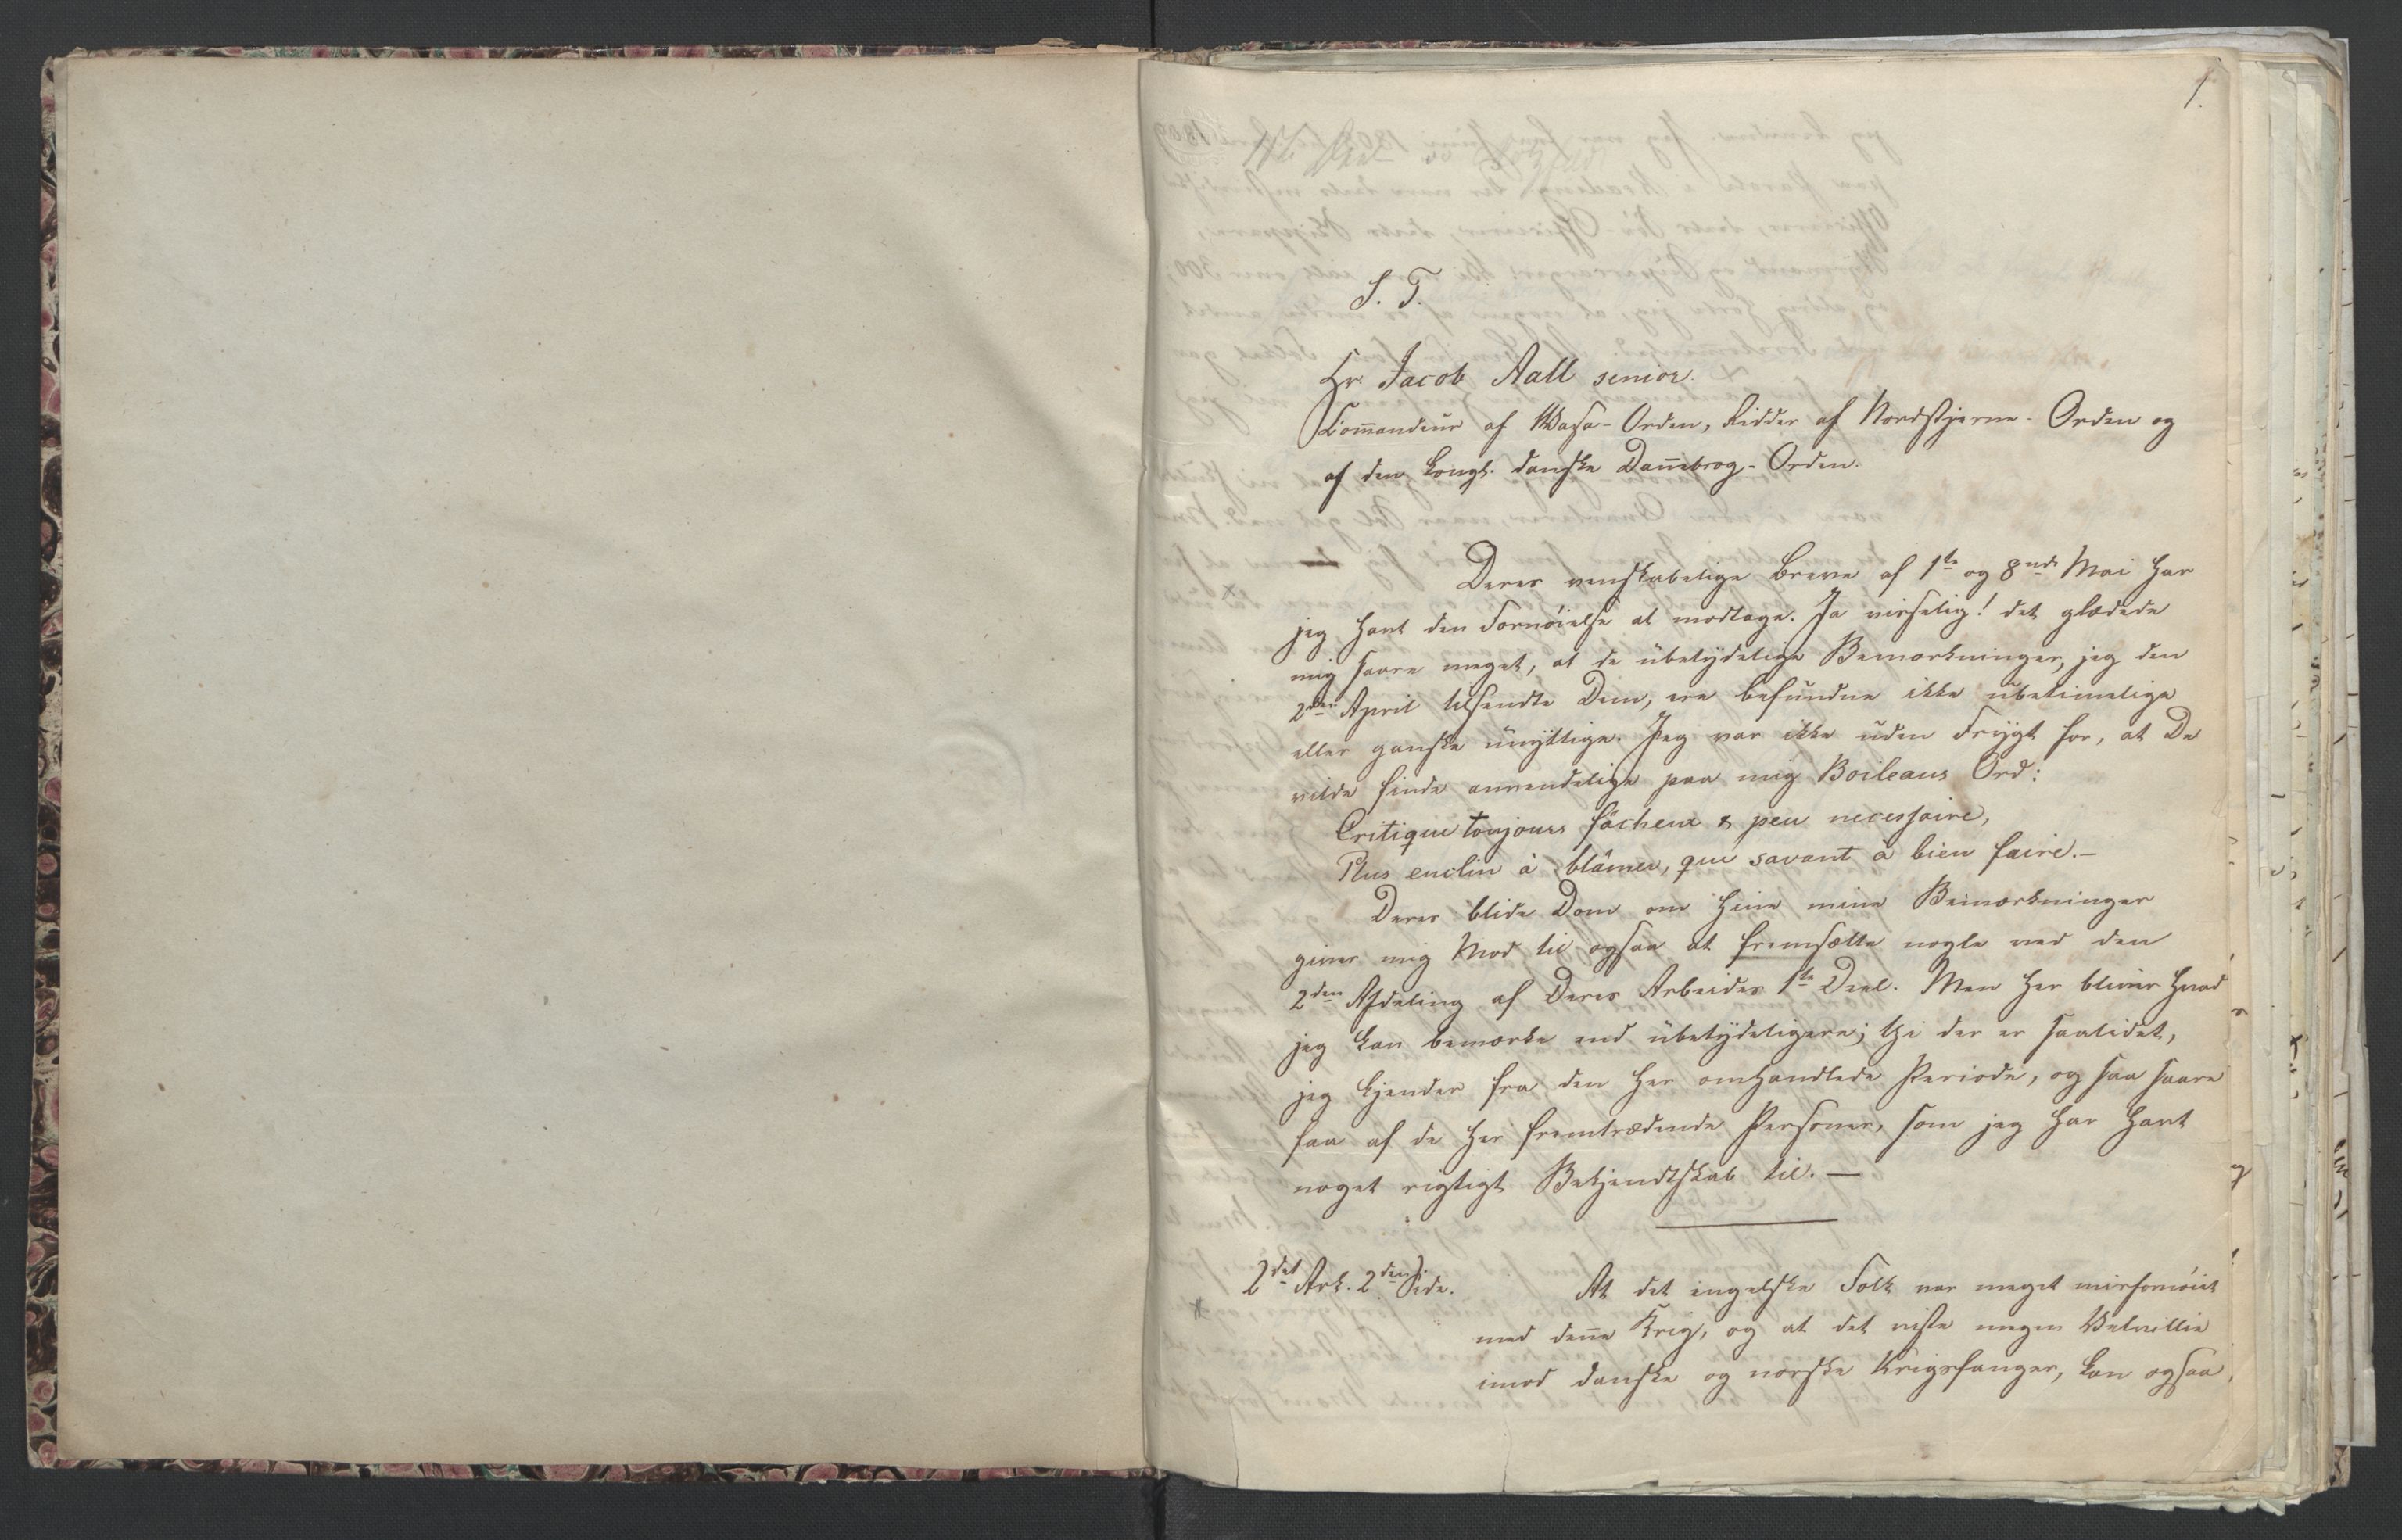 1.
S. T.
Hr. Jacob Aall senior.
Com̅andeur af Wasa-Orden, Ridder af Nordstjerne-Orden og
af den kongl. danske Dan̅ebrog-Orden.
Deres venskabelige Breve af 1ste og 8nde Mai har
jeg havt den Fornöielse at modtage. Ja visselig! det glædede
mig saare meget, at de übetydelige Bemærkninger, jeg den
2den April tilsendte Dem, ere befundne ikke übetimelige
eller ganske ünyttige. Jeg var ikke uden Frygt for, at De
vilde finde anvendelige paa mig Boileaus Ord:
Critique toujours fâcheux & peu necessaire,
Plus enclin à blâmer, que savant à bien faire.—
Deres blide Dom om hine mine Bemærkninger
giver mig Mod til ogsaa at fremsætte nogle ved den
2den Afdeling af Deres Arbeides 1ste Deel. Men her bliver hvad
jeg kan bemærke end übetydeligere; thi der er saalidet,
jeg kjender fra den her omhandlede Periode, og saa saare
faa af de her fremtrædende Personer, som jeg har havt
noget rigtigt Bekjendtskab til. —
2det Ark. 2den Side.
At det engelske Folk var meget misfornöiet
med den̅e Krig, og at det viste megen Velvillie
imod danske og norske Krigsfanger, kan ogsaa